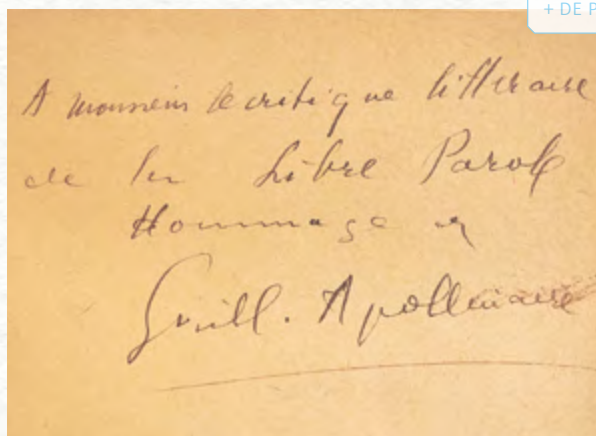 + DE P
A monsieur le critique littéraire
de la Libre Parole
Hommage
Guill. Apollinaire